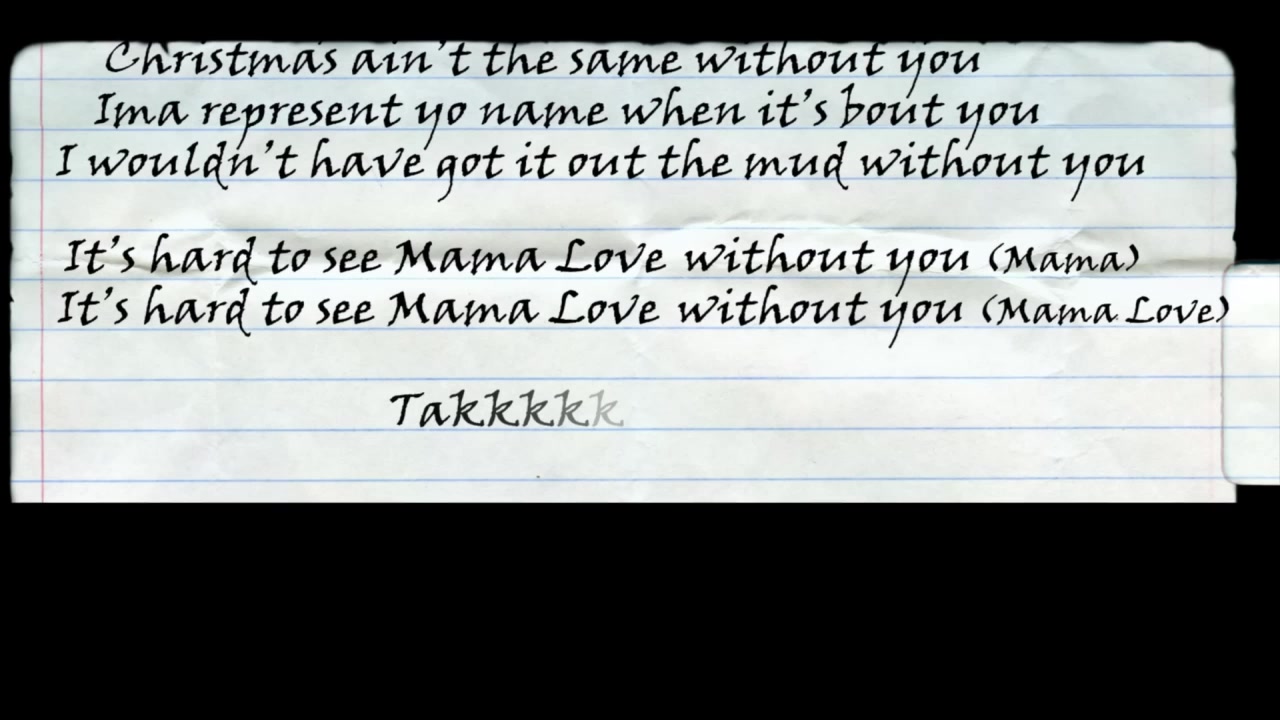 Christmas ain't the same without you
Ima represent yo name when it's bout you
I wouldn't have got it out the mud without you
It's hard to see Mama Love without you (Mama)
It's hard to see Mama Love without you (Mama Love)
Takkkkk